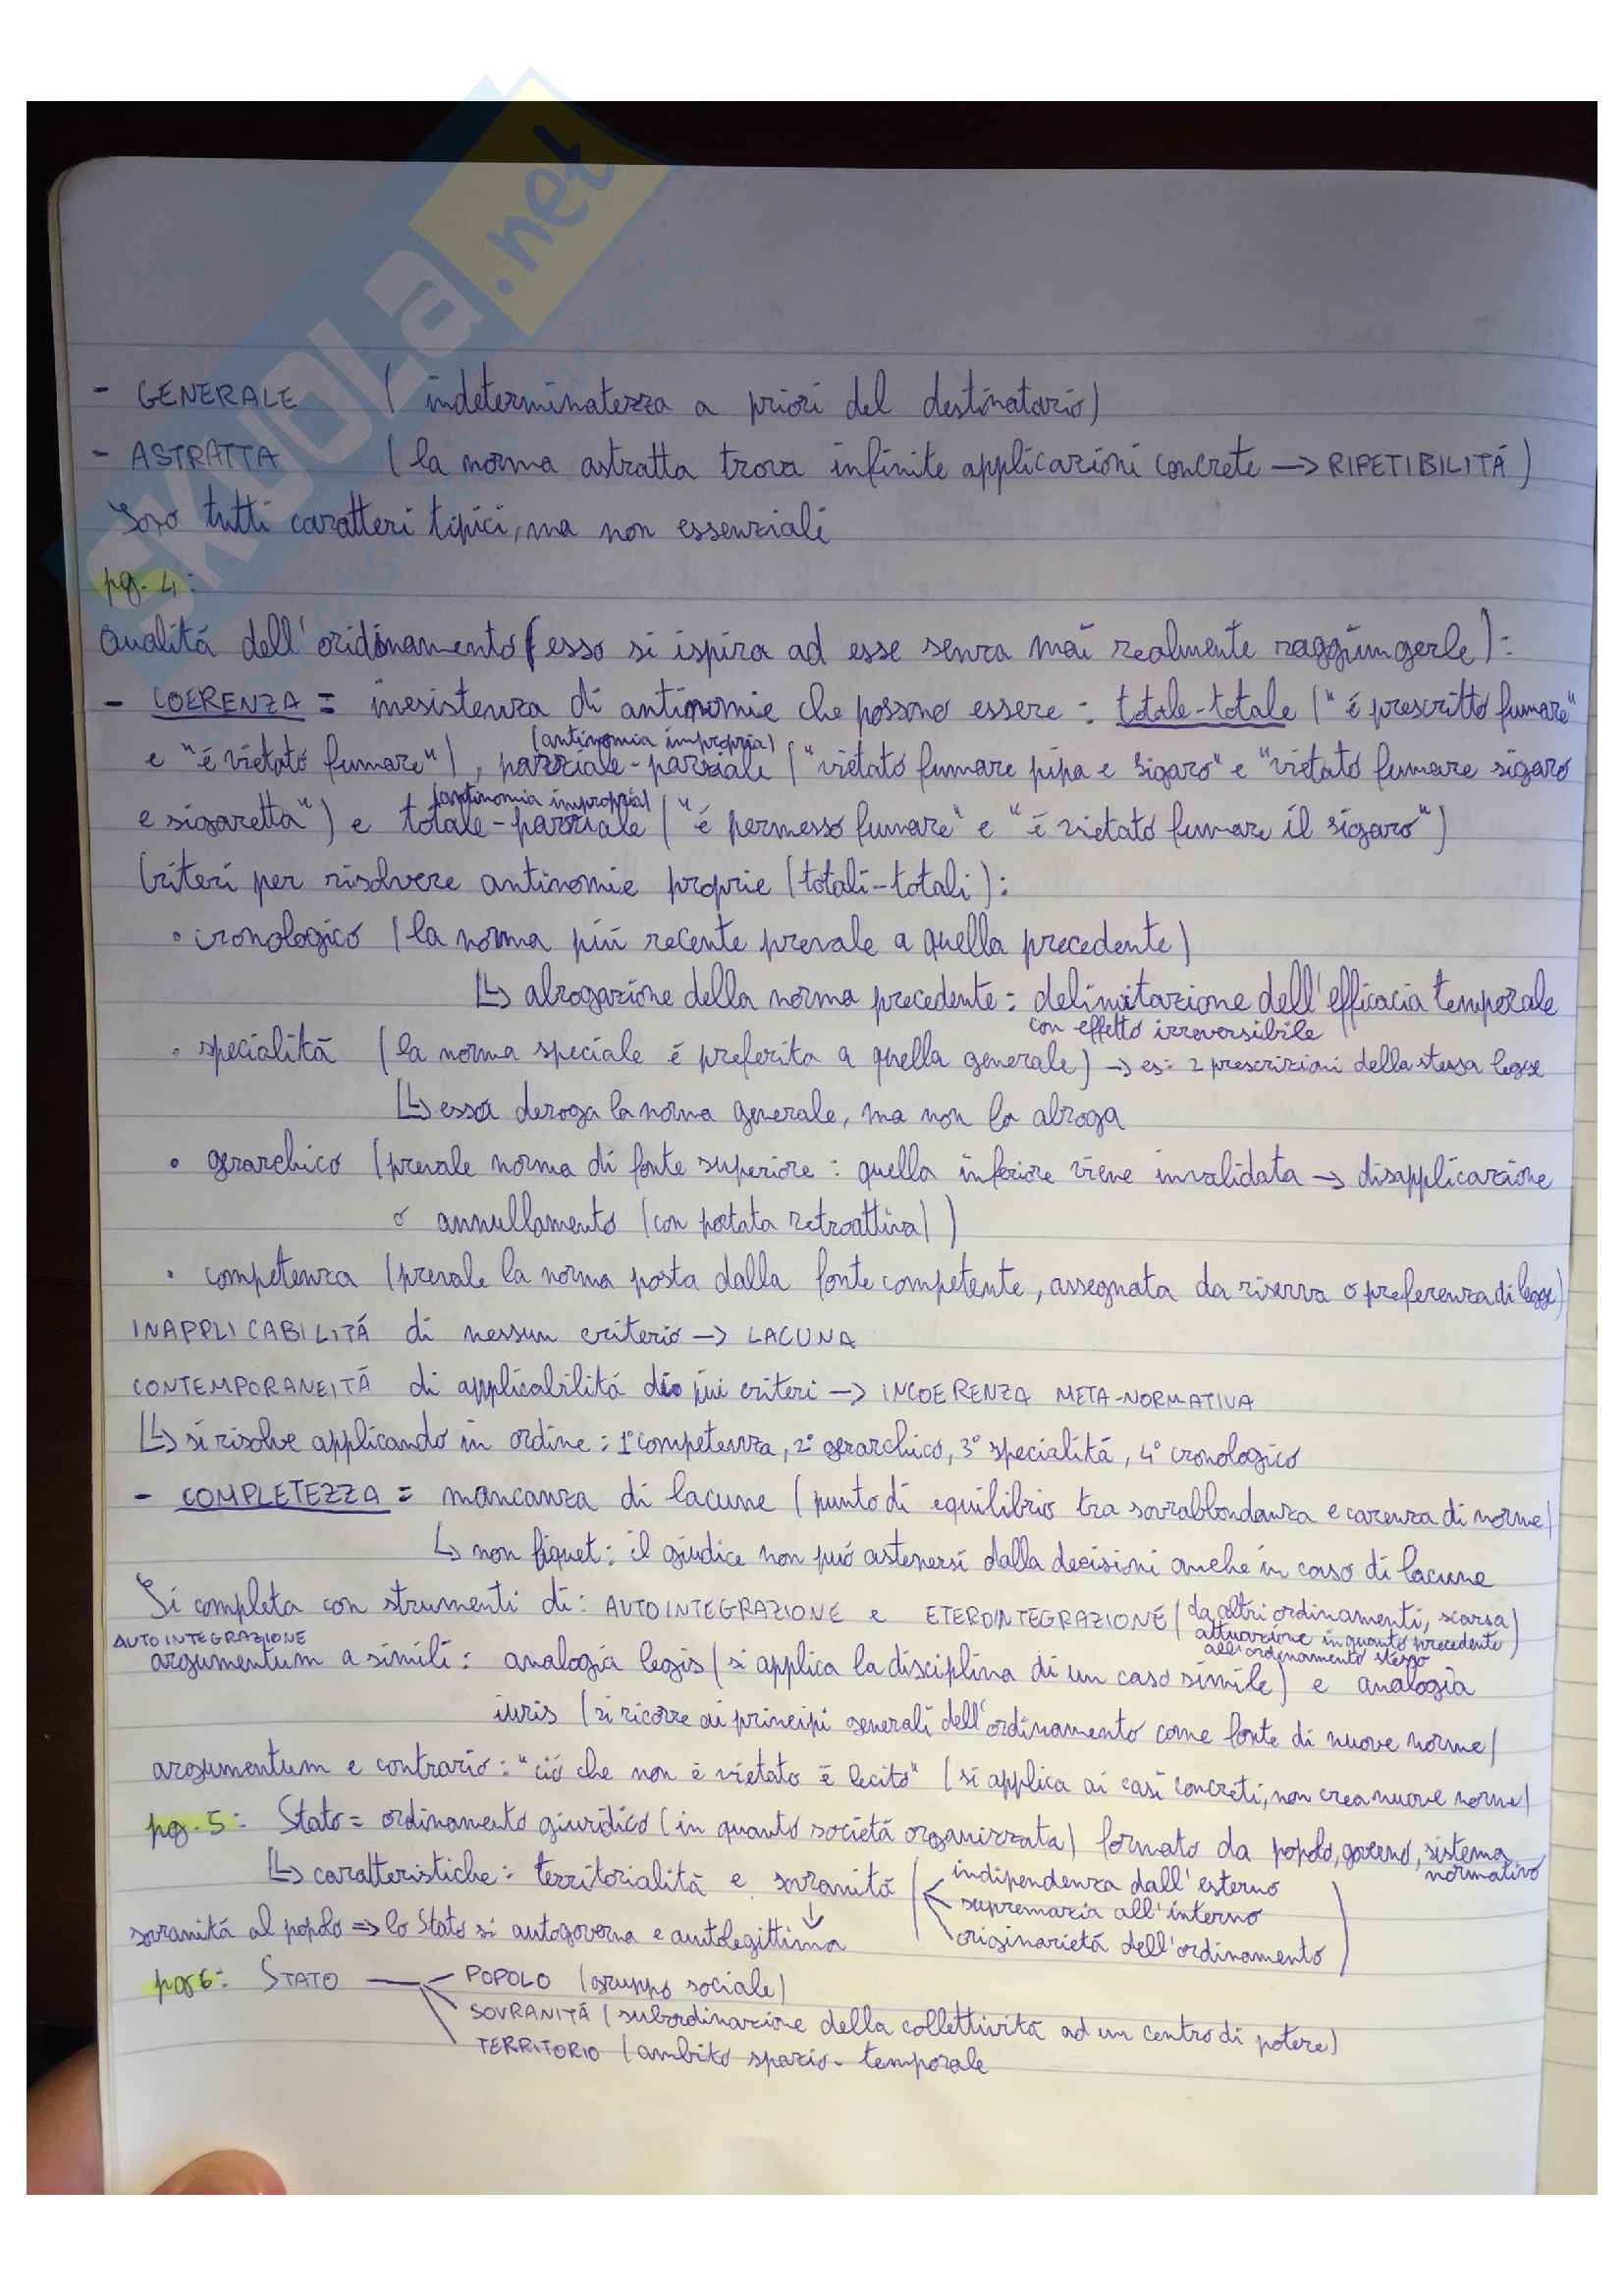 SKUOLa.net
- GENERALE ( indeterminatezza a priori del destinatario)
- ASTRATTA (la norma astratta trova infinite applicazioni concrete → RIPETIBILITÁ)
Sono tutti caratteri tipici, ma non essenziali
pg. 4:
Qualitá dell'oridinamento (esso si ispira ad esse senza mai realmente raggiungerle):
- COERENZA = inesistenza di antinomie che possono essere: totale-totale ("é prescritto fumare"
(antinomia impropria)
e "é vietato fumare"), parziale-parziale ("vietato fumare pipa e sigaro" e "vietato fumare sigaro
(antinomia impropria)
e sigaretta") e totale-parziale ("é permesso fumare" e "é vietato fumare il sigaro")
Criteri per risolvere antinomie proprie (totali-totali):
• cronologico (la norma piú recente prevale a quella precedente)
↳ abrogazione della norma precedente: delimitazione dell'efficacia temporale
con effetto irreversibile
• specialitá (la norma speciale é preferita a quella generale) → es: 2 prescrizioni della stessa legge
↳ essa deroga la norma generale, ma non la abroga
• gerarchico (prevale norma di fonte superiore: quella inferiore viene invalidata → disapplicazione
o annullamento (con portata retroattiva))
• competenza (prevale la norma posta dalla fonte competente, assegnata da riserva o preferenza di legge)
INAPPLICABILITÁ di nessun criterio → LACUNA
CONTEMPORANEITÁ di applicabilitá di piú criteri → INCOERENZA META-NORMATIVA
↳ si risolve applicando in ordine: 1° competenza, 2° gerarchico, 3° specialitá, 4° cronologico
- COMPLETEZZA = mancanza di lacune (punto di equilibrio tra sovrabbondanza e carenza di norme)
↳ non liquet: il giudice non puó astenersi dalla decisioni anche in caso di lacune
Si completa con strumenti di: AUTOINTEGRAZIONE e ETEROINTEGRAZIONE (da altri ordinamenti, scarsa
attuazione in quanto precedente
all'ordinamento stesso)
AUTOINTEGRAZIONE
argumentum a simili: analogia legis (si applica la disciplina di un caso simile) e analogia
iuris (si ricorre ai principi generali dell'ordinamento come fonte di nuove norme)
argumentum e contrario: "ció che non é vietato é lecito" (si applica ai casi concreti, non crea nuove norme)
pg. 5: Stato = ordinamento giuridico (in quanto societá organizzata) formato da popolo, governo, sistema
normativo
↳ caratteristiche: territorialitá e sovranitá (indipendenza dall'esterno
supremazia all'interno
originarietá dell'ordinamento)
sovranitá al popolo ⇒ lo Stato si autogoverna e autolegittima
pg 6: STATO — POPOLO (gruppo sociale)
SOVRANITÁ (subordinazione della collettivitá ad un centro di potere)
TERRITORIO (ambito spazio-temporale